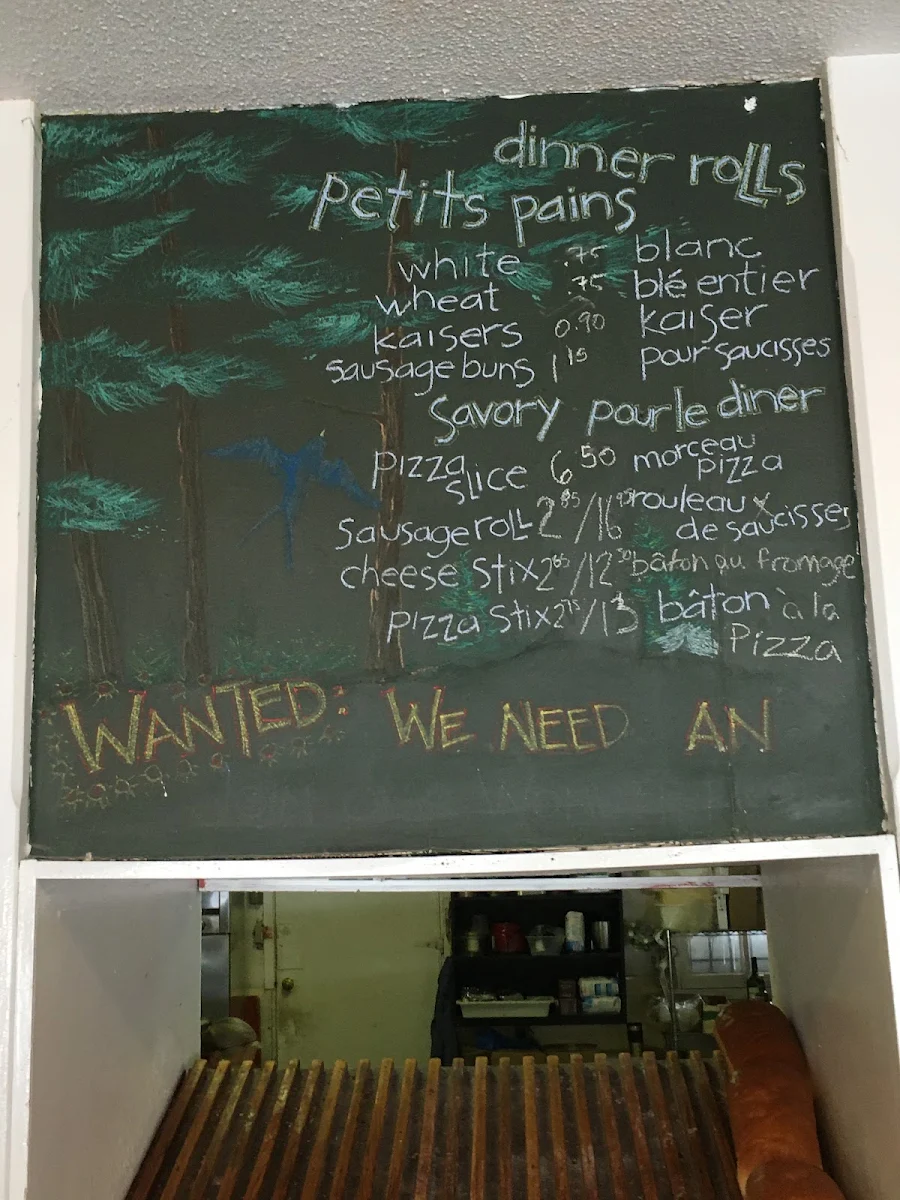 dinner rolls
petits pains
white .75 blanc
wheat .75 blé entier
kaisers 0.90 kaiser
sausage buns 1 15 pour saucisses
savory pour le diner
pizza slice 6 50 morceau pizza
sausage roll 2 85/16 95 rouleaux de saucisses
cheese stix 2 65/12 50 bâton au fromage
pizza stix 2 75/13 bâton à la pizza
WANTED: WE NEED AN